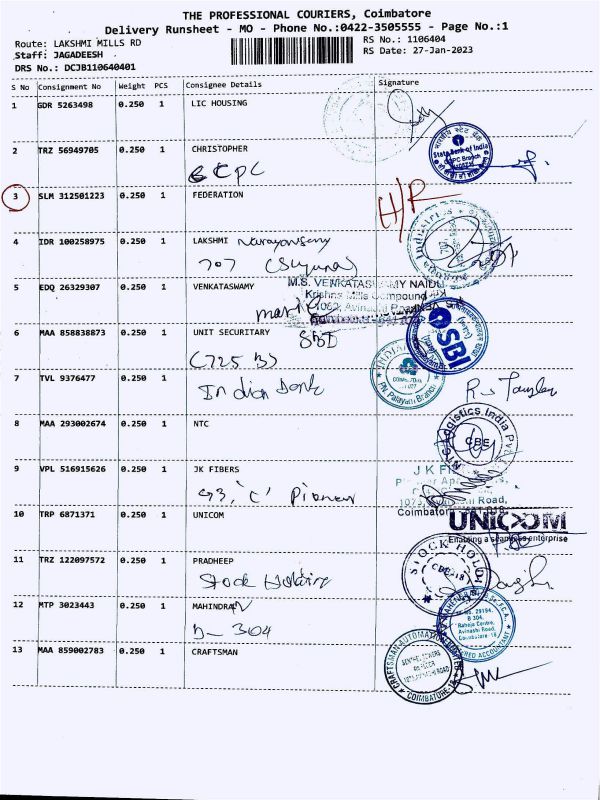 THE PROFESSIONAL COURIERS, Coimbatore
Delivery Runsheet - MO - Phone No.:0422-3505555 - Page No.:1
Route: LAKSHMI MILLS RD RS No.: 1106404
Staff: JAGADEESH RS Date: 27-Jan-2023
DRS No.: DCJB110640401
S No Consignment No Weight PCS Consignee Details Signature
1 GDR 5263498 0.250 1 LIC HOUSING
2 TRZ 56949705 0.250 1 CHRISTOPHER
State Bank of India
3 SLM 312501223 0.250 1 FEDERATION
H/R
4 IDR 100258975 0.250 1 LAKSHMI Narayanasamy
707 (Suguna)
5 EDQ 26329307 0.250 1 VENKATASWAMY
M.S. VENKATASWAMY NAIDU
Krishna Mills Compound
6 MAA 858838873 0.250 1 UNIT SECURITARY SBI
(725 B)
SBI
7 TVL 9376477 0.250 1
Indian Bank
P.N. Palayam Branch
8 MAA 293002674 0.250 1 NTC
NTC Logistics India Pvt
CBE
9 VPL 516915626 0.250 1 JK FIBERS
G3, 'C' Pioneer
10 TRP 6871371 0.250 1 UNICOM
UNICOM
Enabling a seamless enterprise
11 TRZ 122097572 0.250 1 PRADHEEP
Stock Holding
STOCK HOLDI
CBE-18
12 MTP 3023443 0.250 1 MAHINDRAN
D- 304
No. 29194,
B 304,
Raheja Centre,
Avinashi Road,
Coimbatore 18
13 MAA 859002783 0.250 1 CRAFTSMAN
CRAFTSMAN AUTOMATION LIMITED
SENTHEL TOWERS
COIMBATORE-18